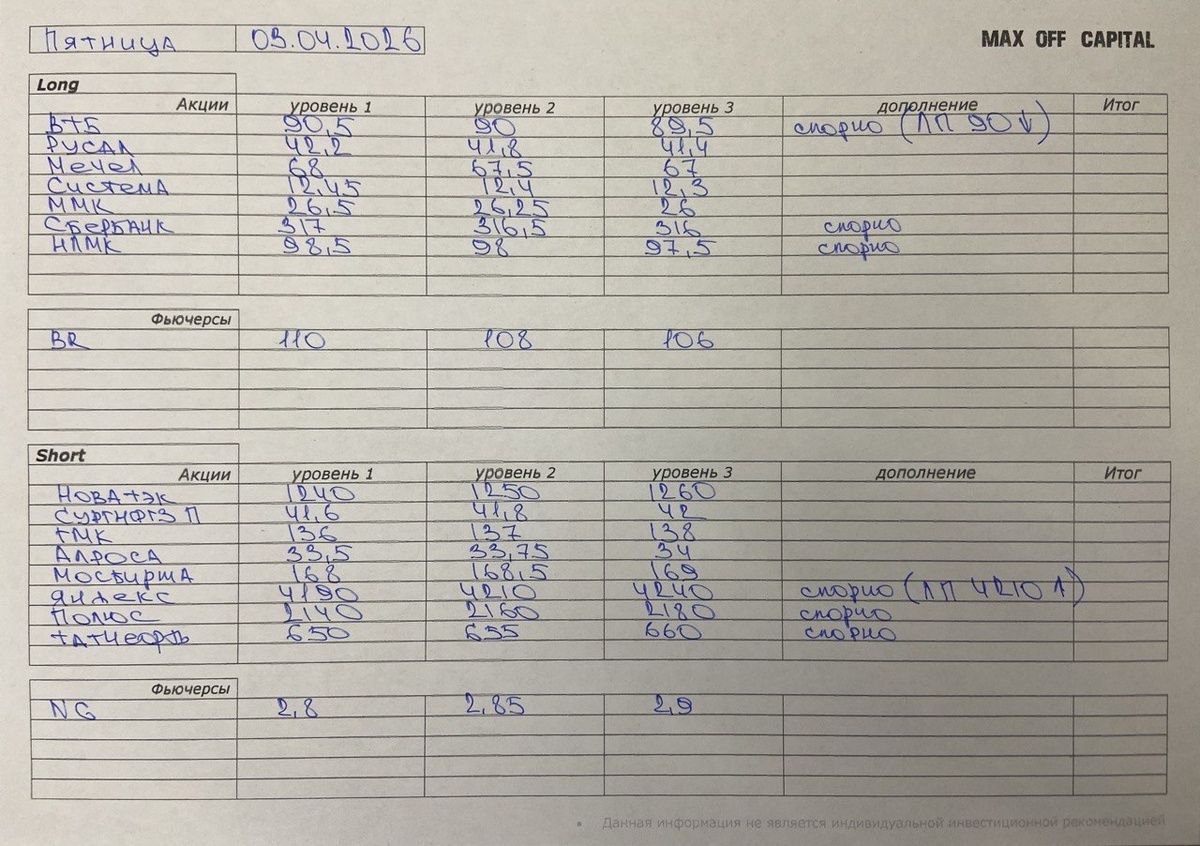 Пятница 03.04.2026 MAX OFF CAPITAL
Long
Акции уровень 1 уровень 2 уровень 3 дополнение Итог
ВТБ 90,5 90 89,5 спорно (ЛП 90↓)
РУСАЛ 42,2 41,8 41,4
Мечел 68 67,5 67
Система 12,45 12,4 12,3
ММК 26,5 26,25 26
Сбербанк 317 316,5 316 спорно
НЛМК 98,5 98 97,5 спорно
Фьючерсы
BR 110 108 106
Short
Акции уровень 1 уровень 2 уровень 3 дополнение Итог
Новатэк 1240 1250 1260
Сургнфтз П 41,6 41,8 42
ТМК 136 137 138
Алроса 33,5 33,75 34
Мосбиржа 168 168,5 169
Яндекс 4190 4210 4240 спорно (ЛП 4210↑)
Полюс 2140 2160 2180 спорно
Татнефть 650 655 660 спорно
Фьючерсы
NG 2,8 2,85 2,9
• Данная информация не является индивидуальной инвестиционной рекомендацией